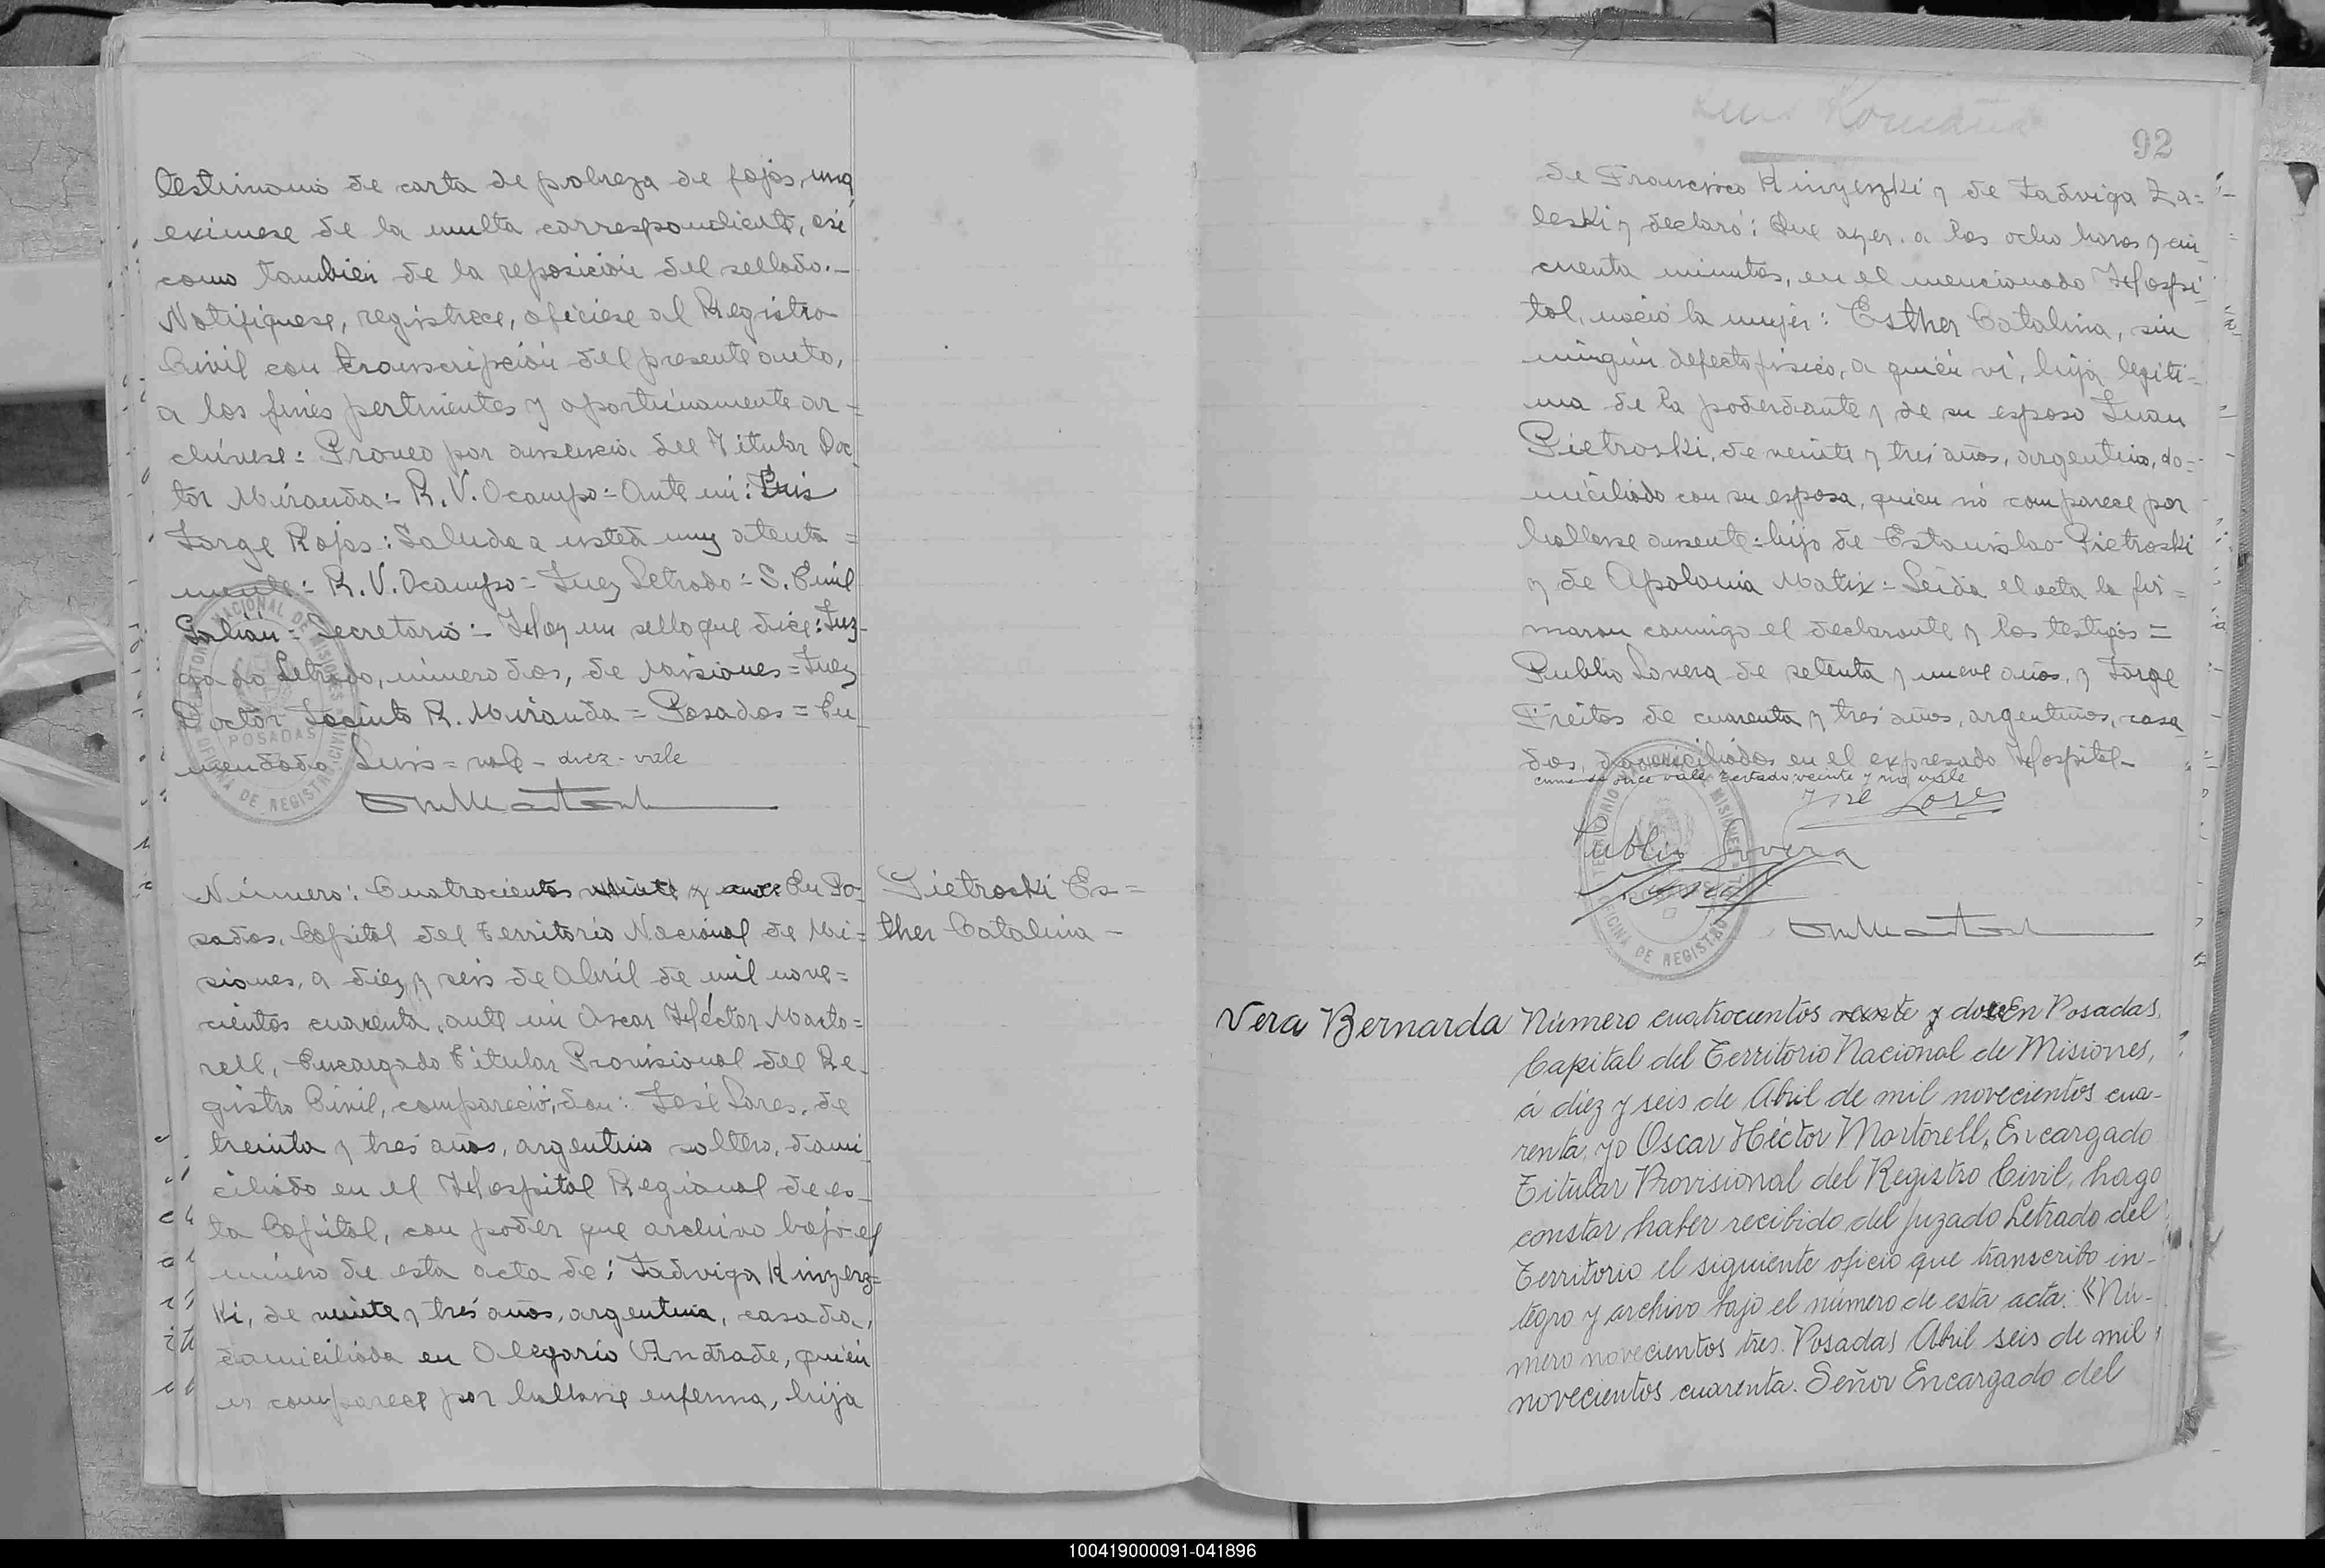 testimonio de carta de pobreza de fojas, una
eximese de la multa correspondiente, asi
como tambien de la reposición del sellado.-
Notifiquese, registrece, ofíciese al Registro
Civil con transcripción del presente auto,
a los fines pertinentes y oportunamente ar=
chívese: Proveo por ausencia del Titular Doc
tor Miranda= R. V. Ocampo= Ante mi: Luis
Jorge Rojas: Saluda a usted muy atenta=
mente: R. V. Ocampo= Juez Letrado= S. Emil
Galian= Secretario= Hay un sello que dice: Juz-
gado Letrado, número dos, de Misiones= Juez
Doctor Jacinto R. Miranda= Posadas= En-
mendado Luis= vale - diez - vale
Número: Cuatrocientos veinte y once En Po-
sadas, Capital del Territorio Nacional de Mi=
siones, a diez y seis de Abril de mil nove=
cientos cuarenta, ante mi Oscar Héctor Marto=
rell, Encargado Titular Provisional del Re-
gistro Civil, compareció, don: José Lares, de
treinta y tres años, argentino soltero, domi
ciliado en el Hospital Regional de es-
ta Capital, con poder que archivo bajo el
número de esta acta de: Jadviga Kinyerz=
ki, de veinte y tres años, argentina, casada,
domiciliada en Olegario V. Andrade, quien
no comparece por hallarse enferma, hija
Pietroski Es=
ther Catalina -
Luis Romaña
92
de Francisco Kinyerzki y de Jadviga Za=
leski y declaró: Que ayer a las ocho horas y cin
cuenta minutos, en el mencionado Hospi
tal, nació la mujer: Esther Catalina, sin
ningún defecto físico, a quien vi, hija legiti=
ma de la poderdante y de su esposo Juan
Pietroski, de veinte y tres años, argentino, do=
miciliado con su esposa, quien no comparece por
hallarse ausente= hijo de Estanislao Pietroski
y de Apolonia Matix= Leida el acta la fir=
maron conmigo el declarante y los testigos=
Publio Lovera de setenta y nueve años, y Jorge
Freitas de cuarenta y tres años, argentinos, casa
dos, domiciliados en el expresado Hospital-
enmendado once vale testado veinte y no vale
José Lares
Publio Lovera
Vera Bernarda
Número cuatrocientos veinte y doce En Posadas,
Capital del Territorio Nacional de Misiones,
á diez y seis de Abril de mil novecientos cua-
renta, yo Oscar Héctor Martorell, Encargado
Titular Provisional del Registro Civil, hago
constar haber recibido del Juzgado Letrado del
Territorio el siguiente oficio que transcribo ín-
tegro y archivo bajo el número de esta acta. «Nú-
mero novecientos tres. Posadas Abril seis de mil
novecientos cuarenta. Señor Encargado del
100419000091-041896